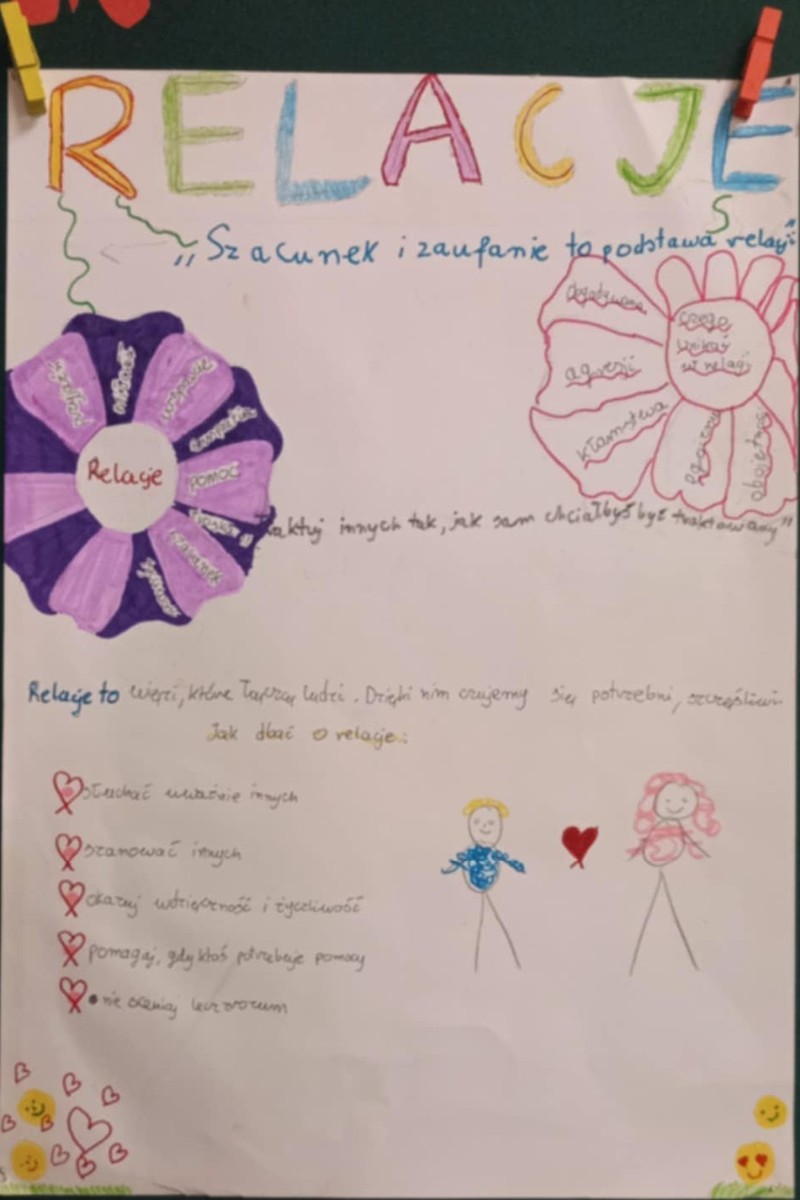 RELACJE
„Szacunek i zaufanie to podstawa relacji"
S
czego
unikać
w relacji
agresji
kłamstwa
obojętność
wsparcie
empatia
pomoc
szacunek
Relacje
Traktuj innych tak, jak sam chciałbyś być traktowany"
Relacje to więzi, które łączą ludzi. Dzięki nim czujemy się potrzebni, szczęśliwi.
Jak dbać o relacje:
słuchać uważnie innych
szanować innych
okazuj wdzięczność i życzliwość
pomagaj, gdy ktoś potrzebuje pomocy
nie oceniaj lecz zrozum